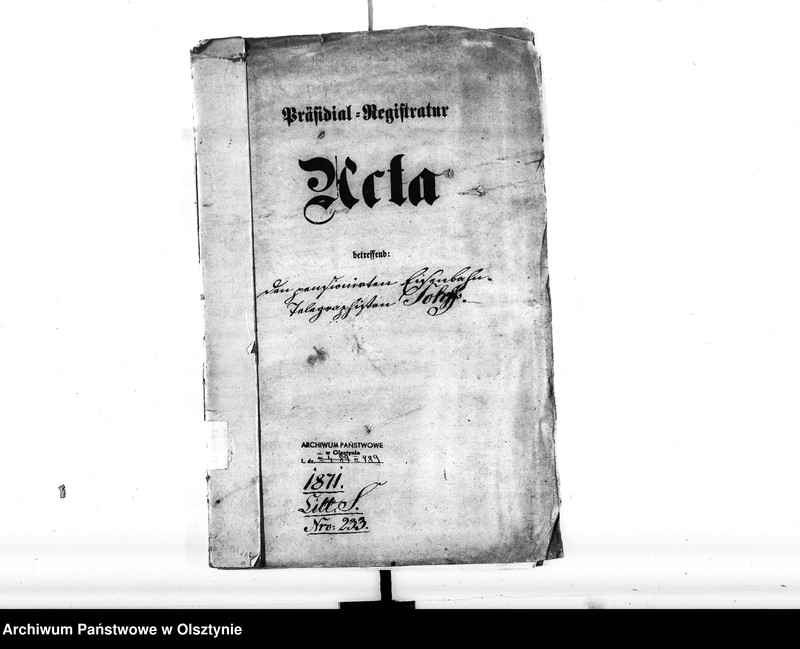 Präsidial-Registratur
Acta
betreffend:
den pensionirten Eisenbahn-
Telegraphisten
ARCHIWUM PAŃSTWOWE
w Olsztynie
489
1871.
Litt. S.
Nro: 233.
Archiwum Państwowe w Olsztynie